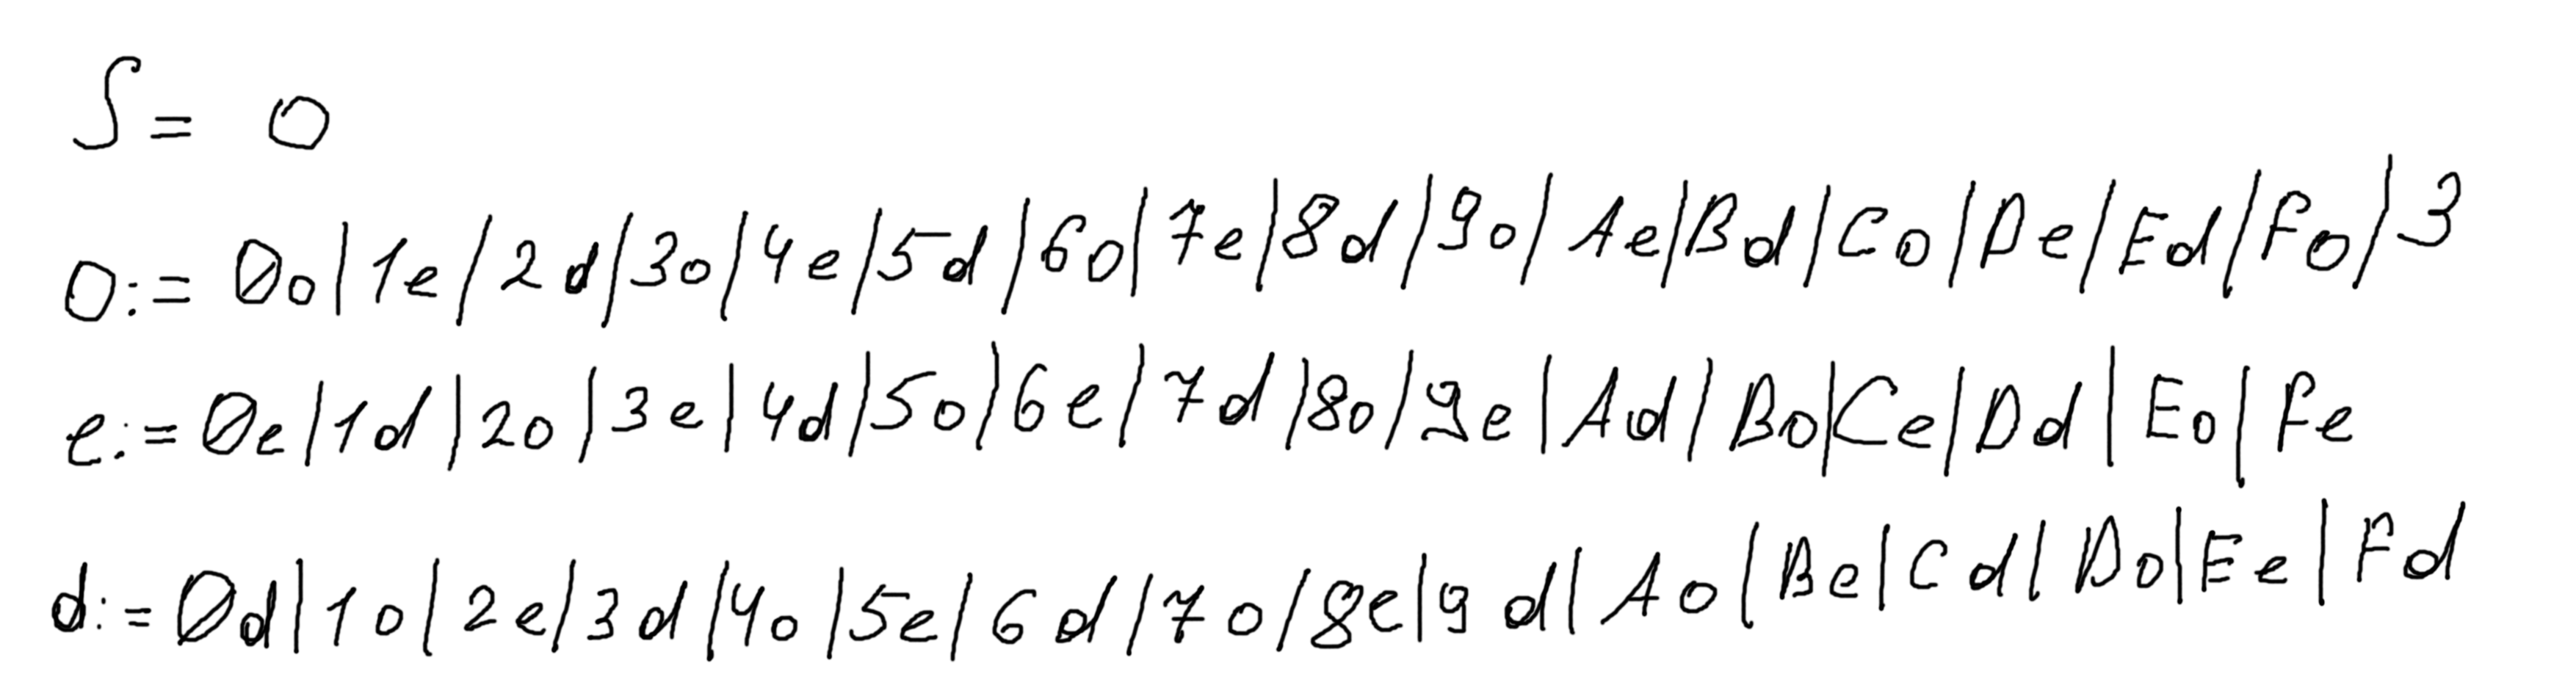 S = O
O := 0o|1e|2d|3o|4e|5d|6o|7e|8d|9o|Ae|Bd|Co|De|Ed|Fo|3
e := 0e|1d|2o|3e|4d|5o|6e|7d|8o|9e|Ad|Bo|Ce|Dd|Eo|Fe
d := 0d|1o|2e|3d|4o|5e|6d|7o|8e|9d|Ao|Be|Cd|Do|Ee|Fd